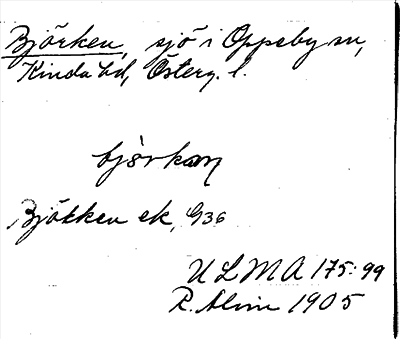 Björken, sjö i Oppeby sn,
Kinda hd, Österg. l.
björkan
Björken ek, G36
ULMA 175:99
R. Alvin 1905